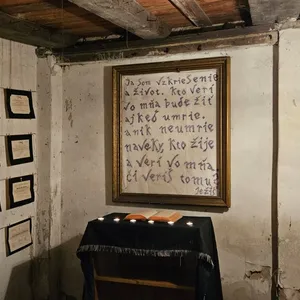 Ja som vzkriesenie
a život. kto verí
vo mňa bude žiť
aj keď umrie.
a nik neumrie
naveky, kto žije
a verí vo mňa
či veríš tomu?
Ježiš